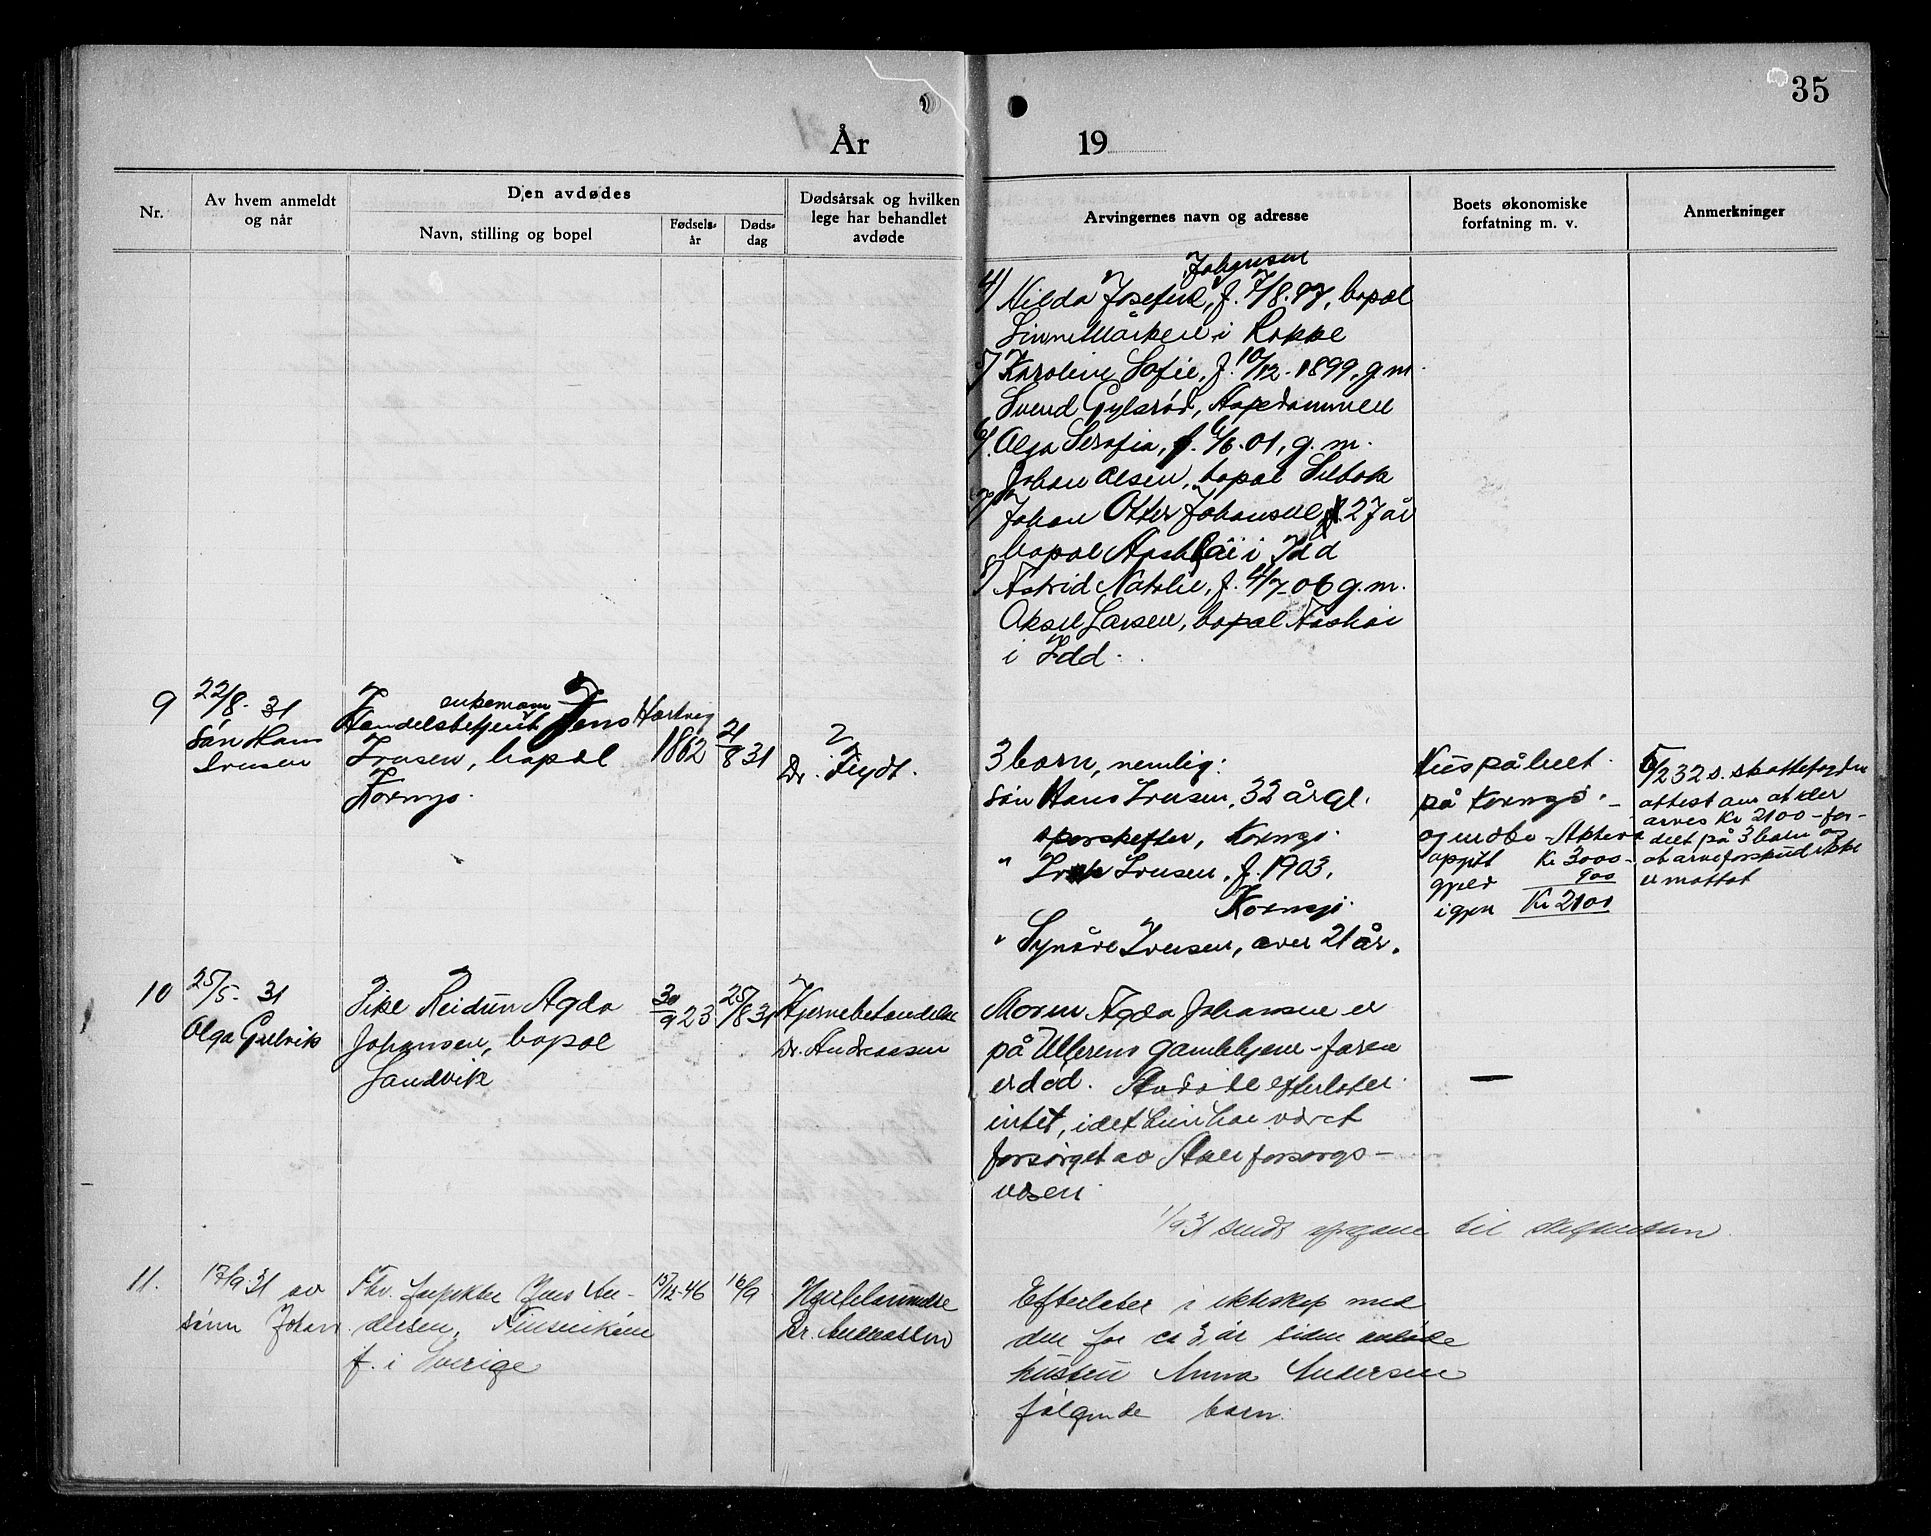 35
År 19
Nr.
Av hvem anmeldt og når
Den avdødes
Navn, stilling og bopel
Fødselsår
Dødsdag
Dødsårsak og hvilken lege har behandlet avdøde
Arvingernes navn og adresse
Boets økonomiske forfatning m. v.
Anmerkninger
Johansen
4) Hilda Josefine, f. 7/8.97, bopæl
i Rokke
5) Karoline Sofie, f. 10/12-1899, g.m.
Svend Gylsrød, Aspedammen
6). Olga Serafia, f. 6/6.01, g.m.
Johan Olsen, bopæl
7) Johan Otter Johansen, 27 år
bopæl i Idd
8) Astrid Natalie, f. 4/7-06 g.m.
Aksel Larsen, bopæl
i Idd.
9
22/8-31
Søn Hans
Ivesen
enkemann
Handelsbetjent Jens Hartvig
Ivesen, bopæl
Kornsjø.
1862
21/8 31
Dr.
3 barn, nemlig:
Søn Hans Ivesen, 32 år gl.
sporskifter, Kornsjø.
" Ivesen, f. 1903.
Kornsjø.
" Synøve Ivesen, over 21 år.
Hus på
på Kornsjø.
og indbo - Aktiva
opgitt Kr 3000-
gjeld 900
igjen Kr 2100
6/2 32 s. skattefogden
attest om at der
arves Kr 2100 - for-
delt på 3 barn og
at arveforskud ikke
er mottat
10
25/5-31
Olga Gulvik
Pike Reidun Agda
Johansen, bopæl
Sandvik
30/9 23
25/8 31
Hjernebetændelse
Dr. Andreasen
Moren Agda Johansen er
på Ullerens gamlehjem - faren
er død. Avdøde efterlater
intet, idet hun har været
forsørget av forsorgs-
væsen
—
1/9 31 sendt til
11.
17/9.31 av
sønn Johan
Fhv. Jens An-
dersen,
f. i Sverige
15/12-46
16/9
Dr. Andreassen
Efterlater i ekteskap med
den for ca 3 år siden avdøde
hustru Anna Andersen
følgende barn: